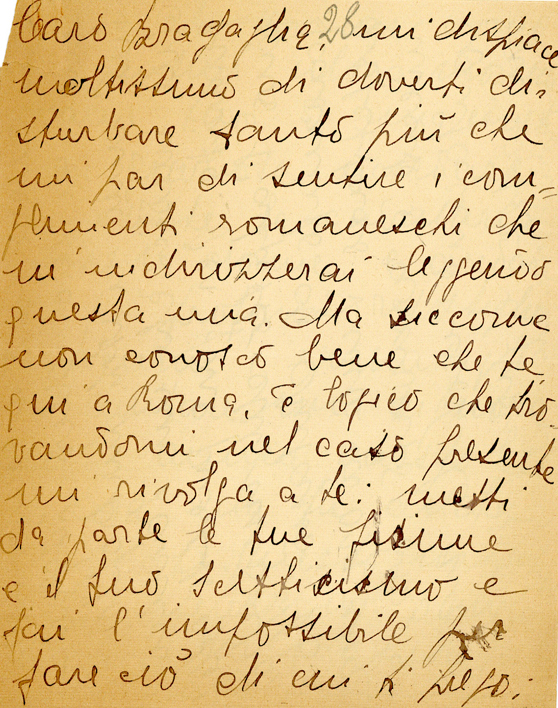 Caro Bragaglia, 28 mi dispiace
moltissimo di doverti di-
sturbare tanto più che
mi par di sentire i com-
plimenti romaneschi che
m'indirizzerai leggendo
questa mia. Ma siccome
non conosco bene che te,
qui a Roma, è logico che tro-
vandomi nel caso presente
mi rivolga a te: metti
da parte le tue fisime
e il tuo scetticismo e
fai l'impossibile per
fare ciò di cui ti prego: